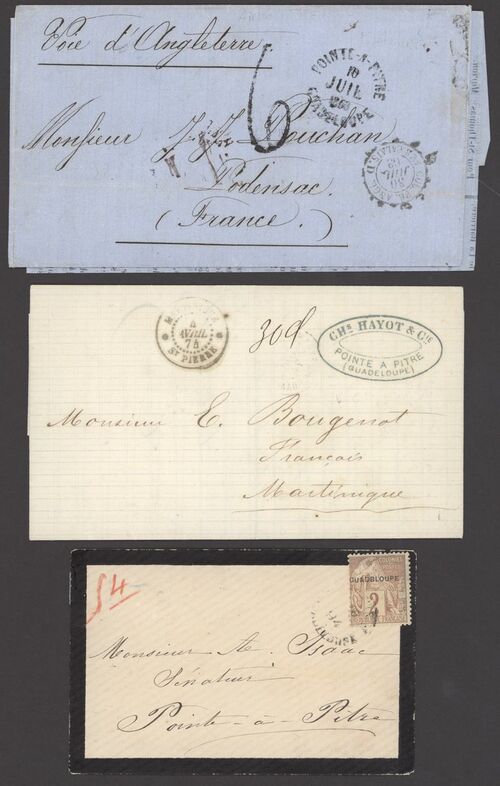 Voie d'Angleterre
6
POINTE-A-PITRE
10
JUIL
GUADELOUPE
Monsieur J. J. Pouchan
Podensac
(France)
30
JUIL
4
AVRIL
74
ST PIERRE
30d
CHs HAYOT & CIE
POINTE A PITRE
(GUADELOUPE)
Monsieur E. Bougenot
Français
Martinique
54
COLONIES
GUADELOUPE
2
94
Monsieur A. Isaac
Sénateur
Pointe-à-Pitre